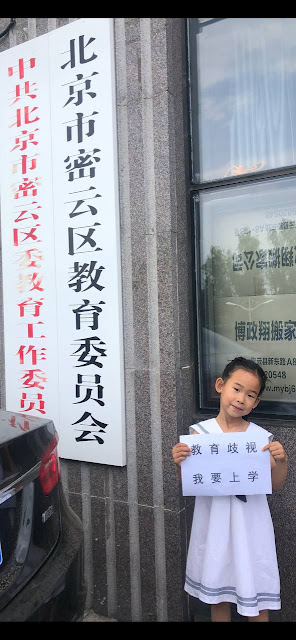 北京市密云区教育委员会
中共北京市密云区委教育工作委员
博政翔搬家
20548
www.mybj6
教育歧视
我要上学